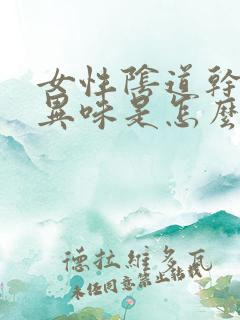 女性陰道幹
異味是怎麼
德拉維多瓦
未經同意禁止轉載